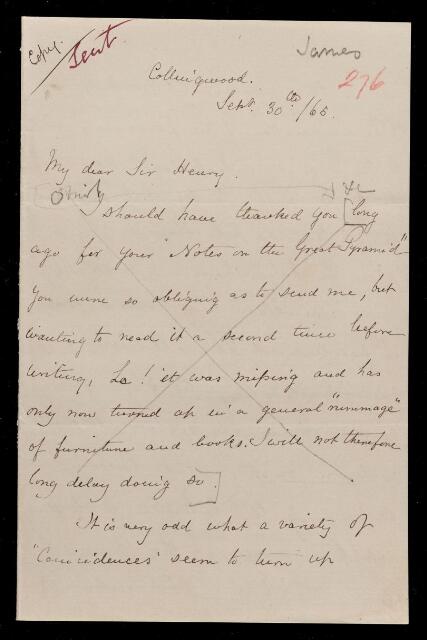 Copy. Sent
James
276
Collingwood.
Sept. 30th/65.
My dear Sir Henry.
Omit
I should have thanked you [long
ago for your "Notes on the Great Pyramid"
you were so obliging as to send me, but
wanting to read it a second time before
writing, Lo! it was missing and has
only now turned up in a general "rummage"
of furniture and books. I will not therefore
long delay doing so.]
It is very odd what a variety of
"Coincidences" seem to turn up